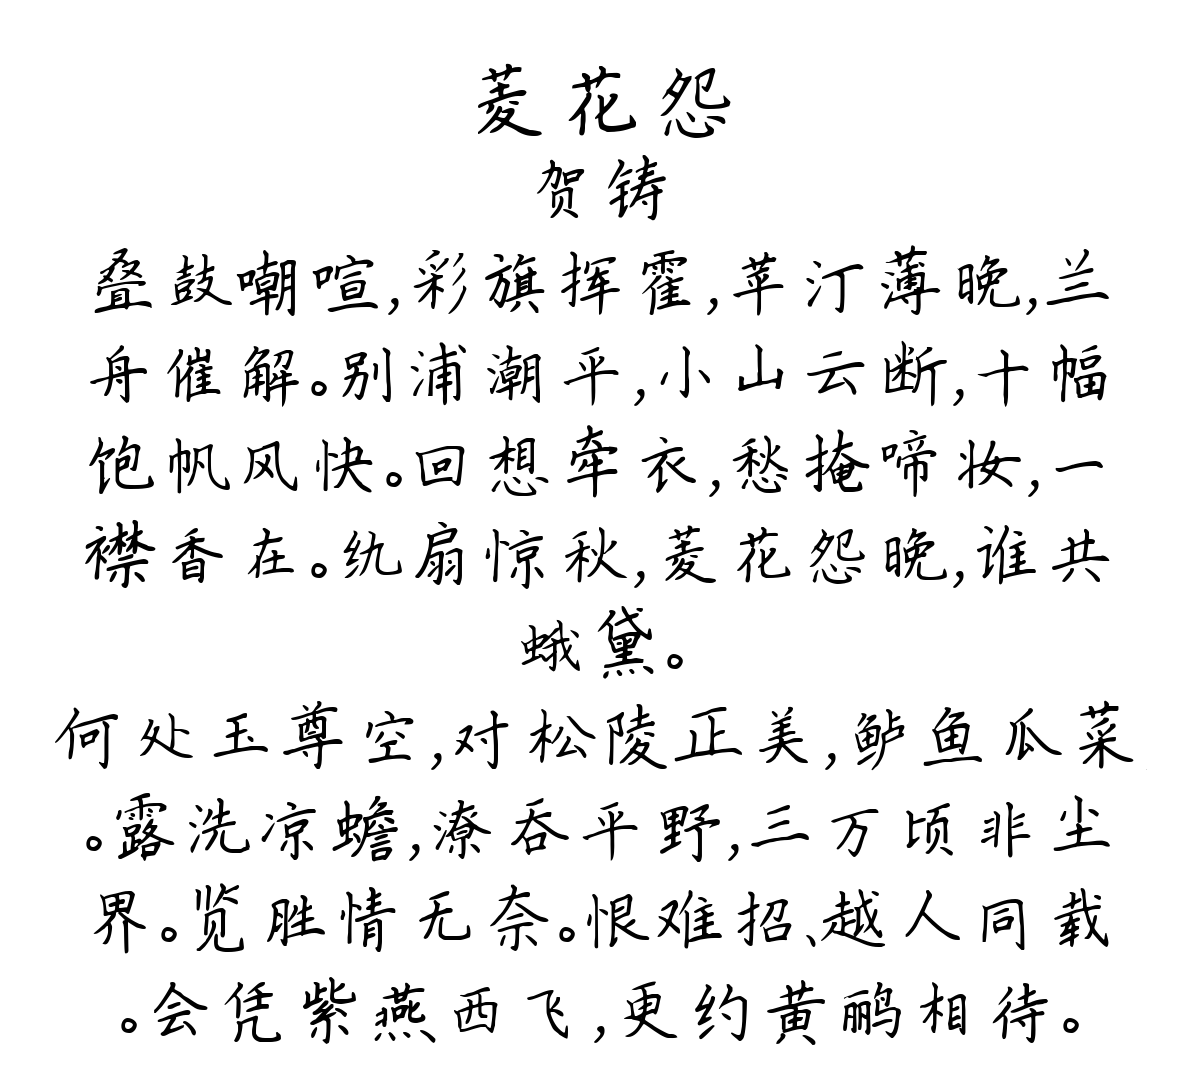 菱花怨
贺铸
叠鼓嘲喧,彩旗挥霍,苹汀薄晚,兰
舟催解。别浦潮平,小山云断,十幅
饱帆风快。回想牵衣,愁掩啼妆,一
襟香在。纨扇惊秋,菱花怨晚,谁共
蛾黛。
何处玉尊空,对松陵正美,鲈鱼瓜菜
。露洗凉蟾,潦吞平野,三万顷非尘
界。览胜情无奈。恨难招、越人同载
。会凭紫燕西飞,更约黄鹂相待。